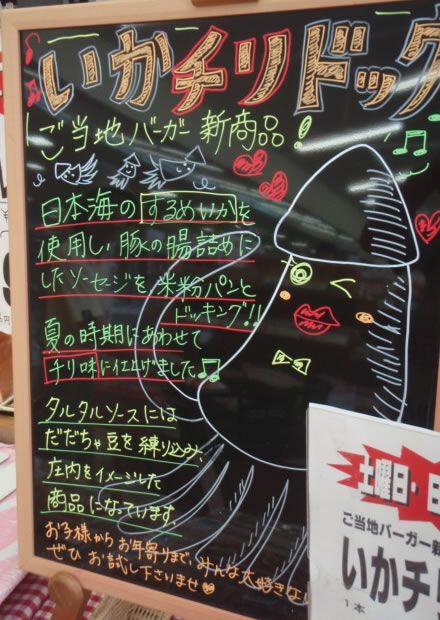 いかチリドッグ
ご当地バーガー新商品!
日本海のするめいかを
使用し、豚の腸詰めに
したソーセージを米粉パンと
ドッキング!!
夏の時期にあわせて
チリ味に仕上げました♫
タルタルソースには
だだちゃ豆を練り込み、
庄内をイメージした
商品になっています。
お子様からお年寄りまで、みんな大好きな
ぜひお試し下さいませ♥
土曜日・日
ご当地バーガー新
いかチ
1本